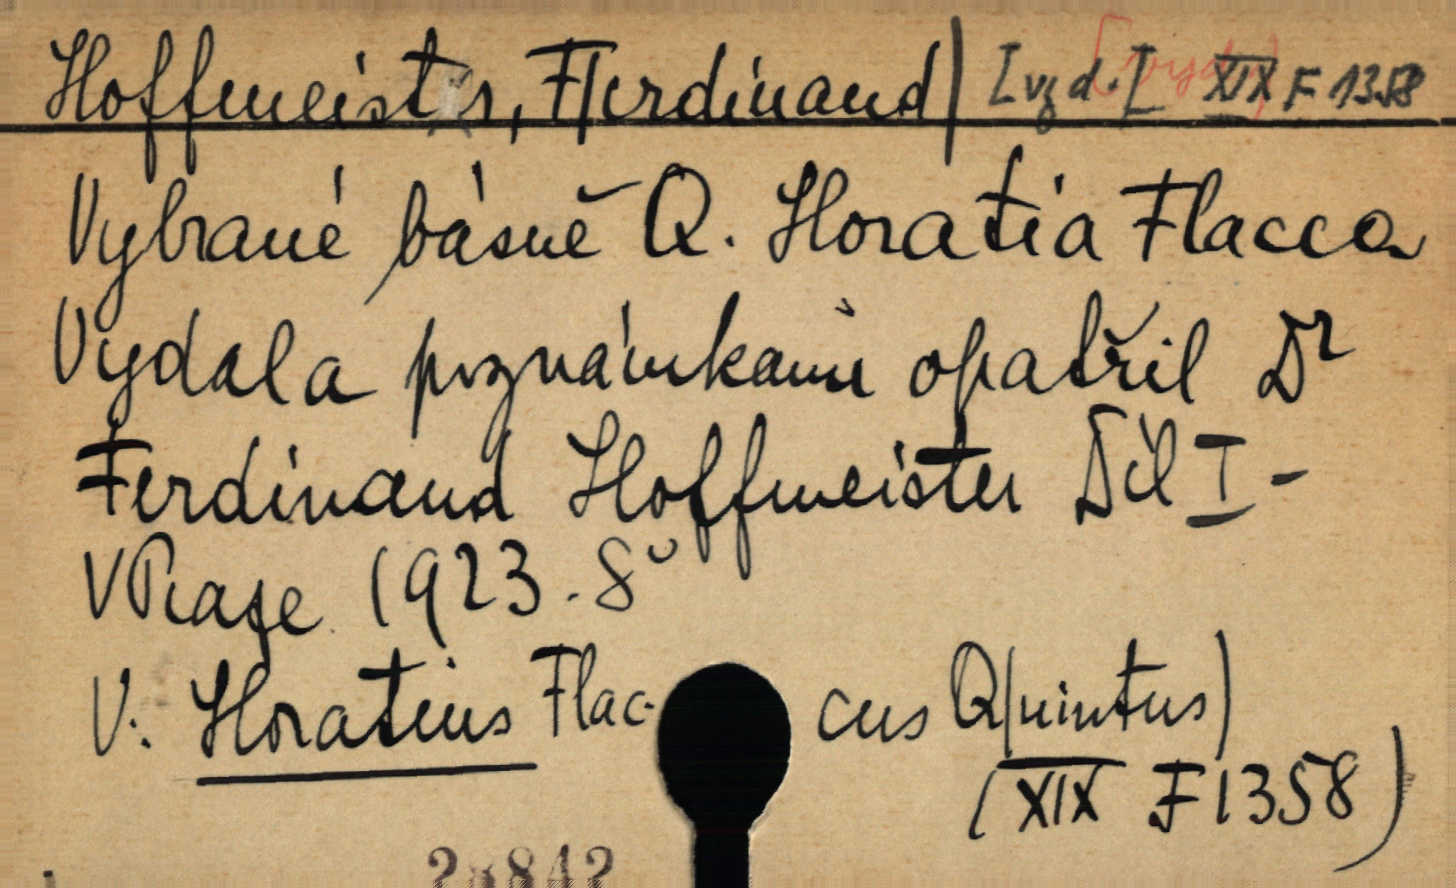 Hoffmeistr, F(erdinand) [vyd.[ XIX F 1358
Vybrané básně Q. Horatia Flacca
Vydal a poznámkami opatřil Dr
Ferdinand Hoffmeister Díl I -
V Praze 1923. 8°
V. Horatius Flaccus Q(uintus)
(XIX F 1358)